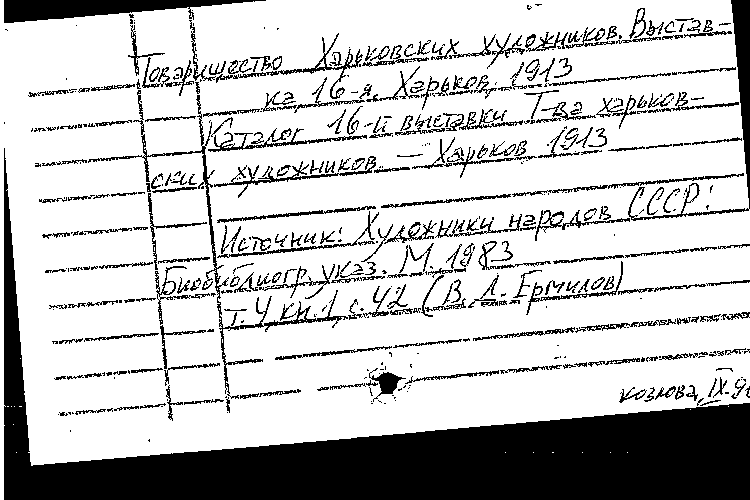 Товарищество Харьковских художников. Выстав-
ка, 16-я, Харьков, 1913
Каталог 16-й выставки Т-ва харьков-
ских художников. — Харьков 1913
Источник: Художники народов СССР:
Биобиблиогр. указ. М., 1983
т. 4, кн. 1, с. 42 (В. Д. Ермилов)
козлова, IX-